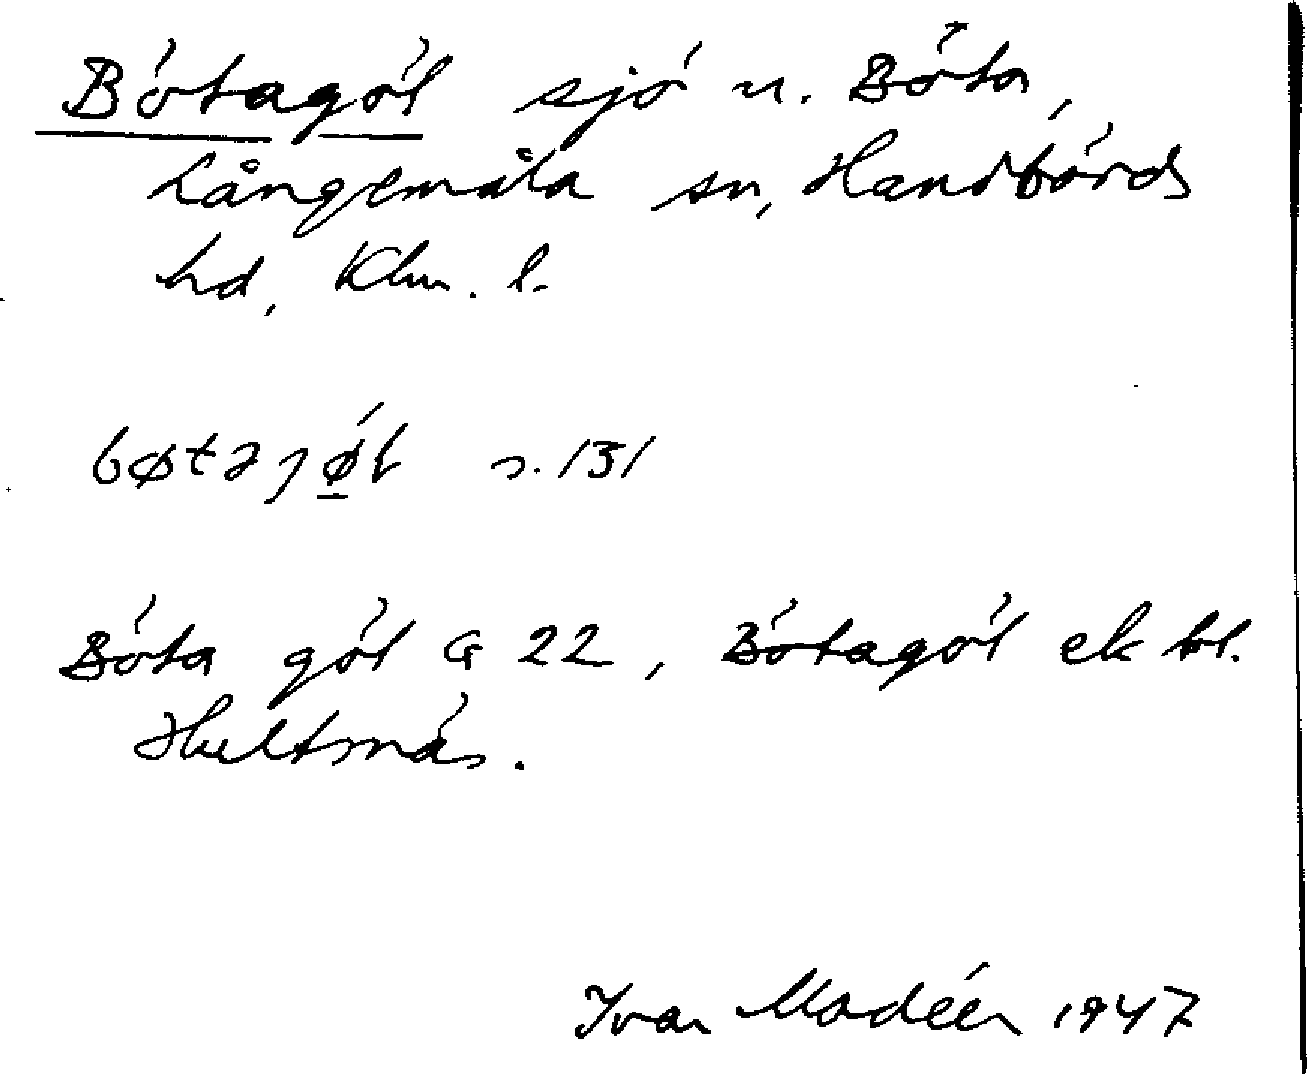 Bötagöl sjö u. Böta,
Långemåla sn, Handbörds
hd, Klm. l.
bøtaɟǿl s. 131
Böta göl G 22, Bötagöl ek bl.
Hultsnäs.
Ivar Modéer 1947